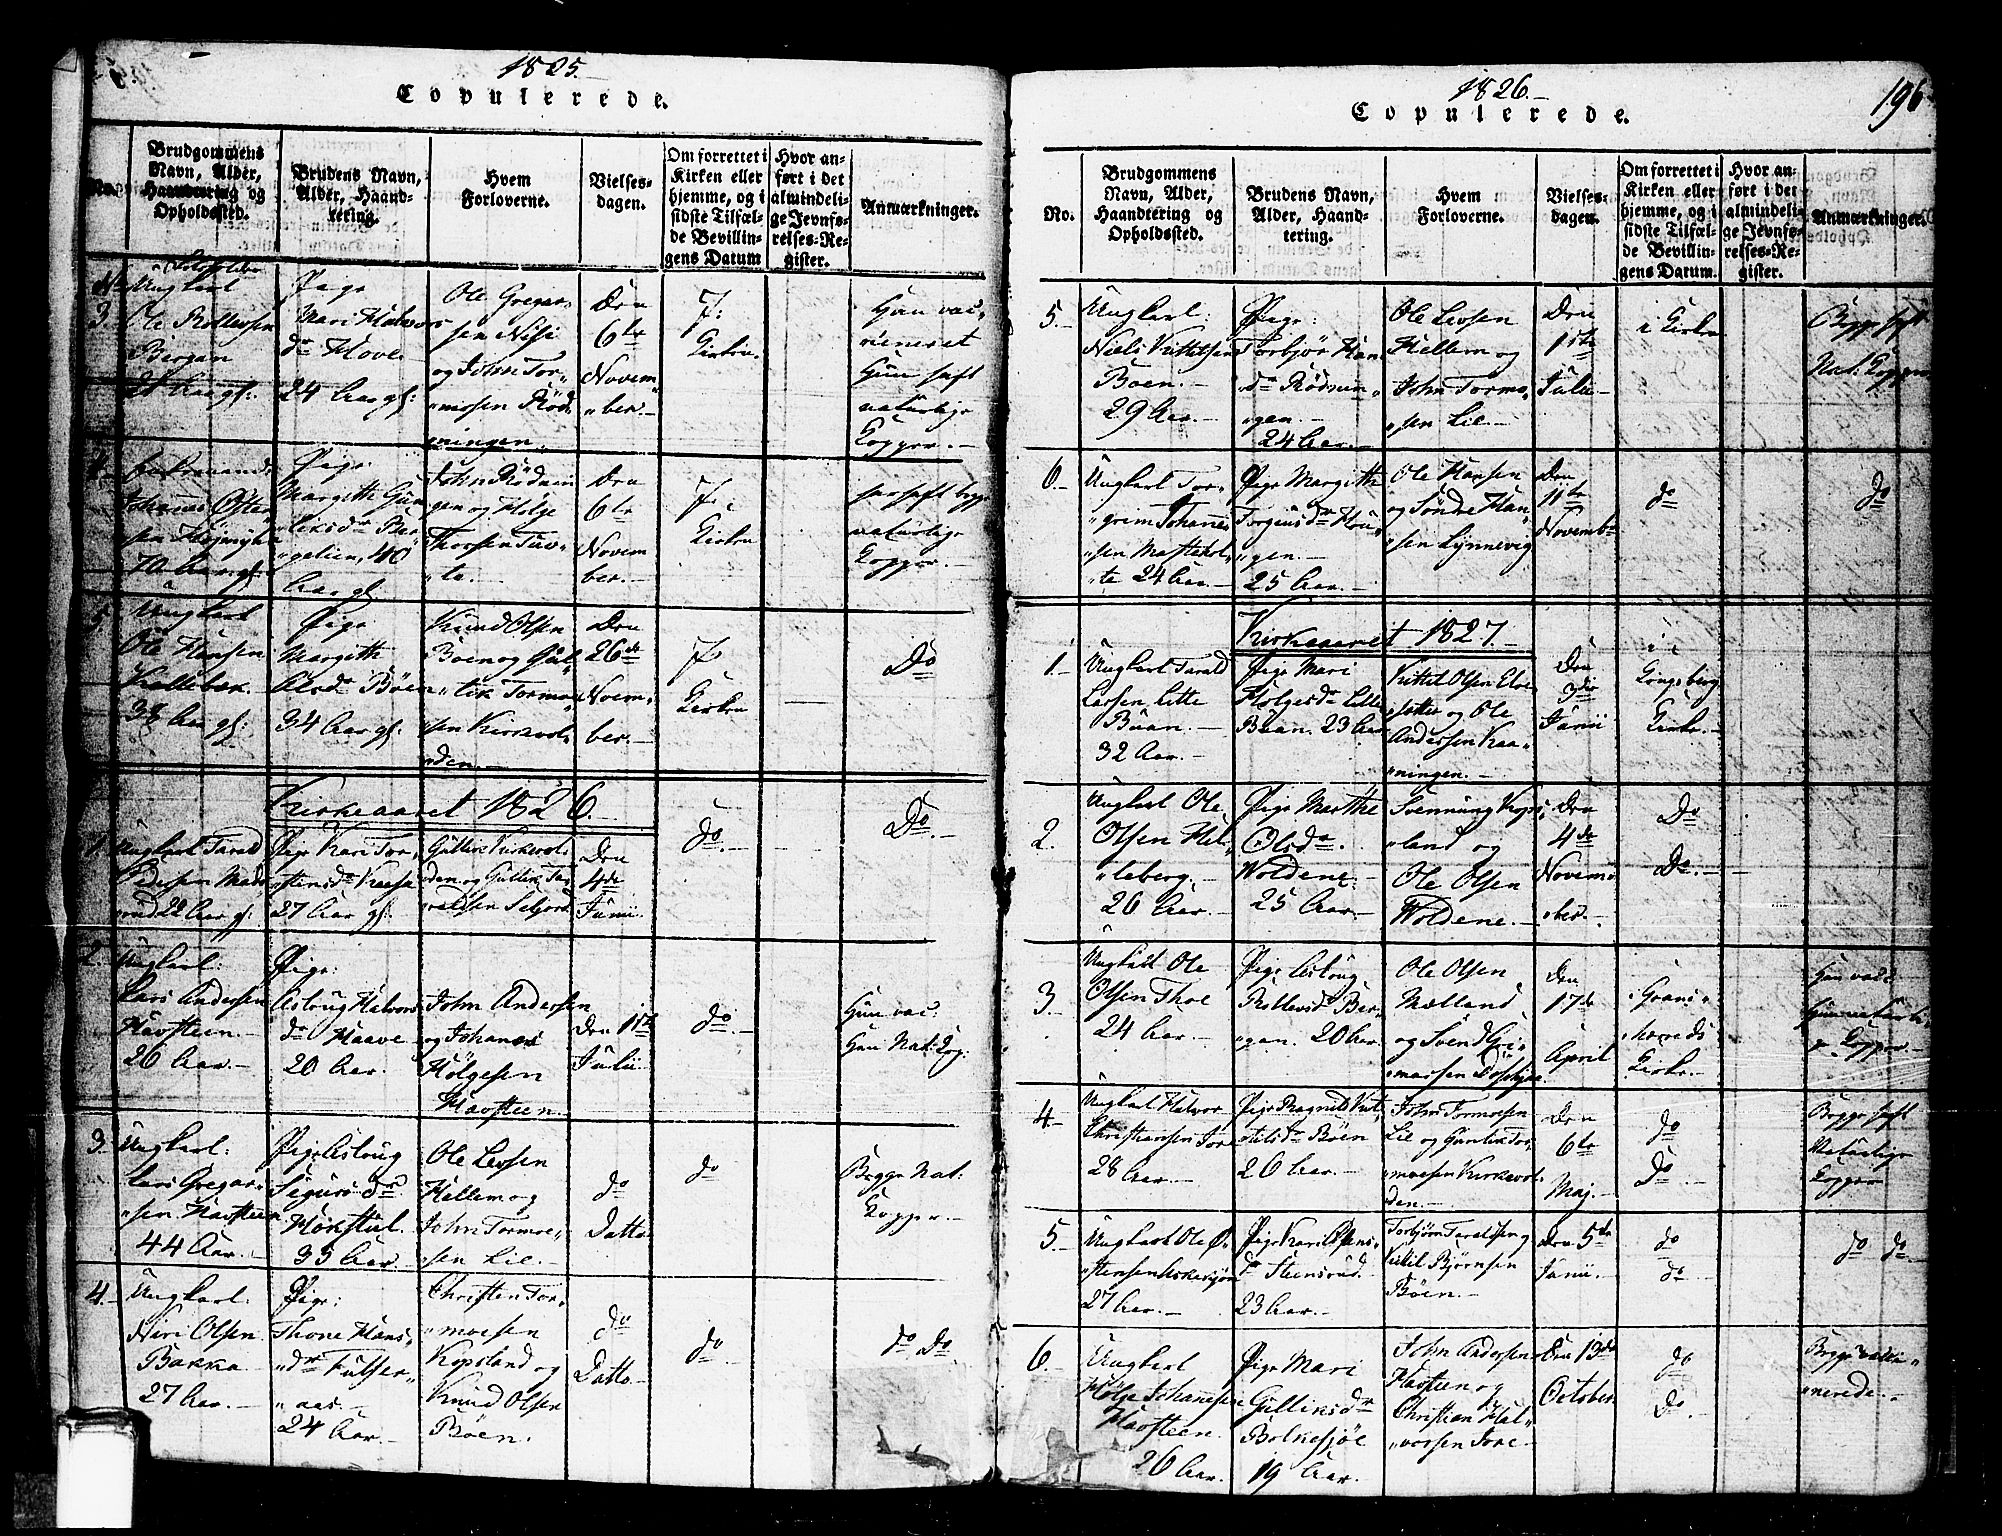 1825.
Copulerede.
No.
Brudgommens Navn, Alder, Haandtering og Opholdssted.
Brudens Navn, Alder, Haandtering.
Hvem Forloverne.
Vielsesdagen.
Om forrettet i Kirken eller hjemme, og i sidste Tilfælde Bevillingens Datum
Hvor anført i det almindelige Jevnførelses-Register.
Anmærkninger.
3.
Ungkarl
Ole Rollefsen
Bergan
Pige
Mari Halvors
dr Hove
24 Aar gl:
Ole Gregar„
sen Nisi
og John Tor„
„mosen Röd„
mingen.
Den
6te
Novem„
„ber.
J.
Kirken.
Hun vac„
cineret
Ham haft
naturlige
Kopper.
4
Johannes
70 Aar gl:
Pige
Margith Gun
leiksdr
40
Aar gl
John Rödnin
gen og Helge
Thorsen Tuv„
„te.
Den
6te
Novem
ber.
J.
Kirken
naturlige
Kopper.
5
Ungkarl
Ole Hansen
Kallebæk.
38 Aar gl:
Pige
Margith
Olsdr Böen
34 Aar gl:
Knud Olsen
Boen og Gul„
„lik Tormo„
sen Kirkevol„
„den.
Den
26de
Noem„
ber.
J.
Kirken
Do
Kirkeaaret 1826.
1
Ungkarl Tarald
22 Aar gl:
Pige Kari Tor„
„stensdr
27 Aar gl.
Gullik Kirkevol„
den og Gullik Ta„
raldsen Seljord
Den
4de
Junii.
do.
Do.
2
Ungkarl:
Lars Andersen
Havsteen.
26 Aar.
Pige:
Astrug Halvors
dr Haave
20 Aar.
John Andersen
og Johanes
Hölgesen
Havsteen.
Den 1ste
Julii.
do.
Hun vac.
Ham Nat: Kop.
3.
Ungkarl:
Lars Gregar„
„sen Havsteen
44 Aar.
Pige Astrug
Sigursdr
Hökstul.
33 Aar.
Ole Levsen
Hellem og
John Tormoe„
„sen Lie.
do
Datto
do
Begge Nat:
Kopper.
4.
Ungkarl:
Niri Olsen
Bakka
27 Aar.
Pige:
Thone Hans„
„dr Fulser„
„aas.
24 Aar.
Christen Tor„
„moesen
Kopsland og
Knud Olsen
Böen.
do
Datto
do
do Do
1826.
196
Copulerede.
No.
Brudgommens Navn, Alder, Haandtering og Opholdssted.
Brudens Navn, Alder, Haandtering.
Hvem Forloverne.
Vielsesdagen.
Om forrettet i Kirken eller hjemme, og i sidste Tilfælde Bevillingens Datum.
Hvor anført i det almindelige Jevnførelses-Register.
Anmærkninger.
5.
Ungkarl:
Niels Kittelsen
Boen.
29 Aar.
Pige:
Torbjör Han
dr Rödnin„
„gen.
24 Aar.
Ole Levsen
Hellem og
John Tormo„
„sen Lie.
Den
1ste
Julii
i Kirken
Begge haft
Nat: Kopper
6.
Ungkarl Tor„
„grim Johannes
„sen
„te 24 Aar.
Pige Margith
Torgiusdr
„gen.
25 Aar.
Ole Hansen
og Söndre Han„
sen Lynnevig
Den
11te
Novembr
do
do
Kirkeaaret 1827.
1.
Ungkarl Tarald
Larsen Lille
Buan.
32 Aar.
Pige Mari
Holgesdr Lille
Buan. 23 Aar
Kittil Olsen
og Ole
Andersen
„ningen.
Den
3die
Junii
i
Kongsberg
Kirke.
2.
Ungkarl Ole
Olsen Hel„
„leberg.
26 Aar.
Pige Marthe
Olsdr.
Woldene.
25 Aar.
Svennung Kops„
„land og
Ole Olsen
Woldene.
Den
4de
Novem„
„ber.
Do
Do.
3
Ungkarl Ole
Olsen Thoe
24 Aar.
Pige Astrug
Rollevsdr Ber„
„gan. 20 Aar
Ole Olsen
Mælland
og Svend
Den
17de
April
i Grans„
„herreds
Kirke.
Hun vacc
Kopper.
4
Ungkarl Halvor
Christensen Tore
28 Aar.
Pige Ragnild Kit„
„tilsdr Böen
26 Aar.
John Tormoesen
Lie og Gunlik Tor„
„moesen Kirkevol„
den.
Den
6te
Maj.
do
Do
Begge haft
Naturlige
Kopper
5.
Ungkarl Ole Ø„
„stensen
27 Aar.
Pige Kari
dr Steensrud.
23 Aar.
Torbjörn Taraldsen og
Kittil Björnsen
Böen.
Den 5te
Junii.
do
do
do do
6.
Ungkarl
Hölge Johanesen
Havsteen.
26 Aar.
Pige Mari
Gulliksdr
Bolkesjöe
19 Aar.
John Andersen
Havsteen og
Christian Hal„
„vorsen Tore
Den 13de
October
do
Do.
Begge vacci„
„nerede.